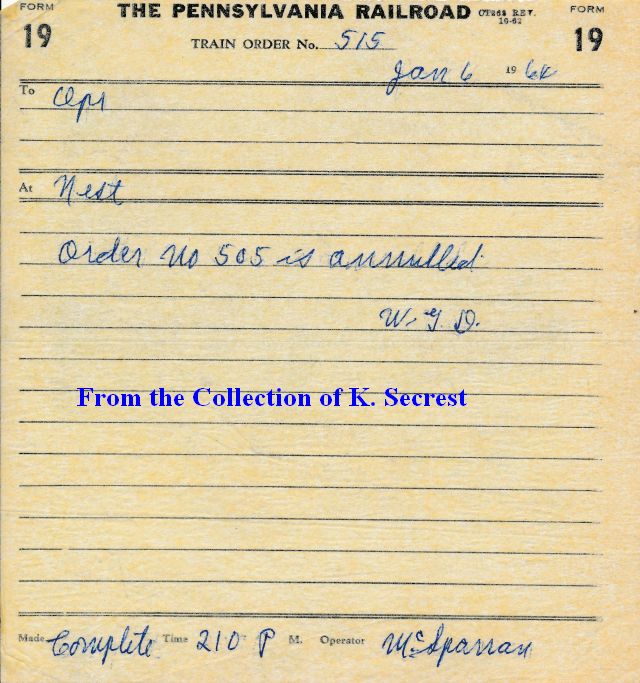 FORM 19
THE PENNSYLVANIA RAILROAD
CT268 REV. 10-62
FORM 19
TRAIN ORDER No. 515
Jan 6 1964
To Opr
At Nest
Order No 505 is annulled
W. G. D.
From the Collection of K. Secrest
Made Complete Time 210 P M. Operator McSparran